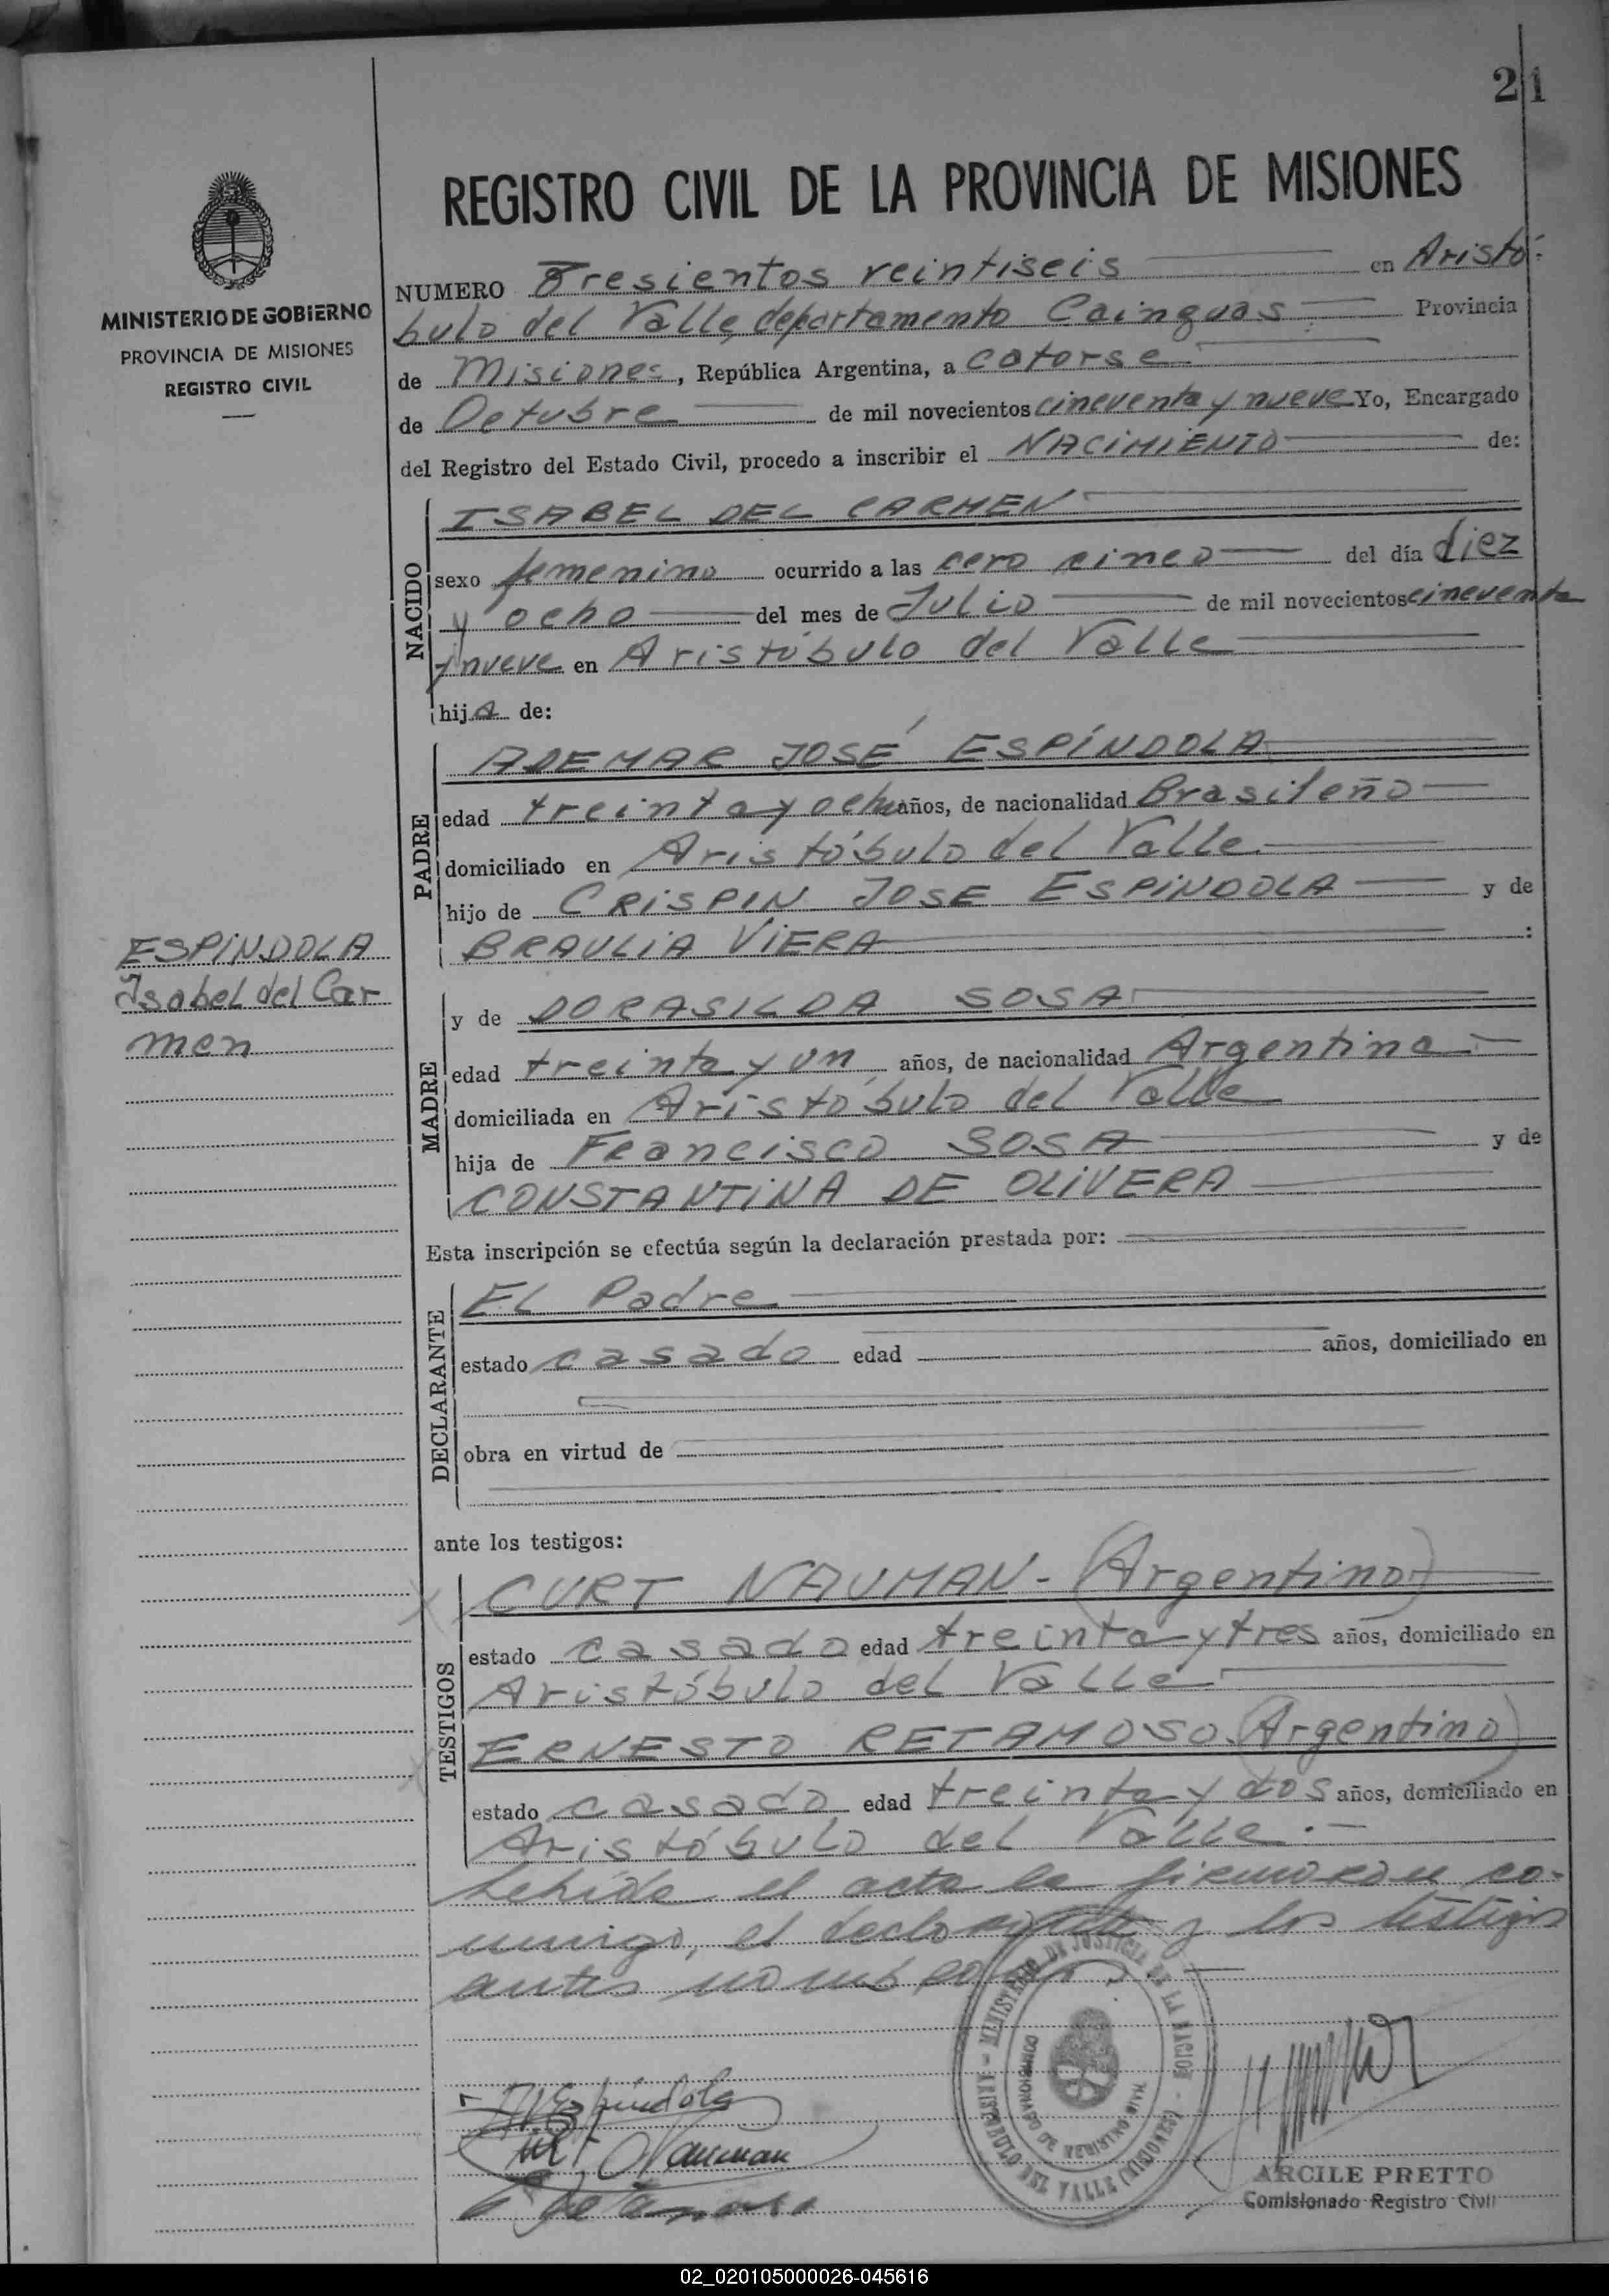 21
REGISTRO CIVIL DE LA PROVINCIA DE MISIONES
MINISTERIO DE GOBIERNO
PROVINCIA DE MISIONES
REGISTRO CIVIL
NUMERO Tresientos veintiseis en Aristó-
bulo del Valle, departamento Cainguas Provincia
de Misiones, República Argentina, a catorse
de Octubre de mil novecientos cincuenta y nueve Yo, Encargado
del Registro del Estado Civil, procedo a inscribir el NACIMIENTO de:
NACIDO
ISABEL DEL CARMEN
sexo femenino ocurrido a las cero cinco del día diez
y ocho del mes de Julio de mil novecientos cincuenta
y nueve en Aristóbulo del Valle
hija de:
PADRE
ADEMAR JOSÉ ESPÍNDOLA
edad treinta y ocho años, de nacionalidad Brasileño
domiciliado en Aristóbulo del Valle
hijo de CRISPIN JOSE ESPINDOLA y de
BRAULIA VIERA :
ESPINDOLA
Isabel del Car
men
MADRE
y de DORASILDA SOSA
edad treinta y un años, de nacionalidad Argentina
domiciliada en Aristóbulo del Valle
hija de Francisco SOSA y de
CONSTANTINA DE OLIVERA
Esta inscripción se efectúa según la declaración prestada por:
DECLARANTE
EL Padre
estado casado edad años, domiciliado en
obra en virtud de
ante los testigos:
TESTIGOS
CURT NAUMAN - (Argentino)
estado casado edad treinta y tres años, domiciliado en
Aristóbulo del Valle
ERNESTO RETAMOSO (Argentino)
estado casado edad treinta y dos años, domiciliado en
Aristóbulo del Valle.-
Lehida el acta la firmaron co-
nmigo, el declarante y los testigos
antes nombrados.
MINISTERIO DE JUSTICIA DE LA NACION - ARISTOBULO DEL VALLE (MISIONES)
COMISIONADO DE REGISTRO CIVIL
Espíndola
Nauman
Retamoso
ARCILE PRETTO
Comisionado Registro Civil
02_020105000026-045616